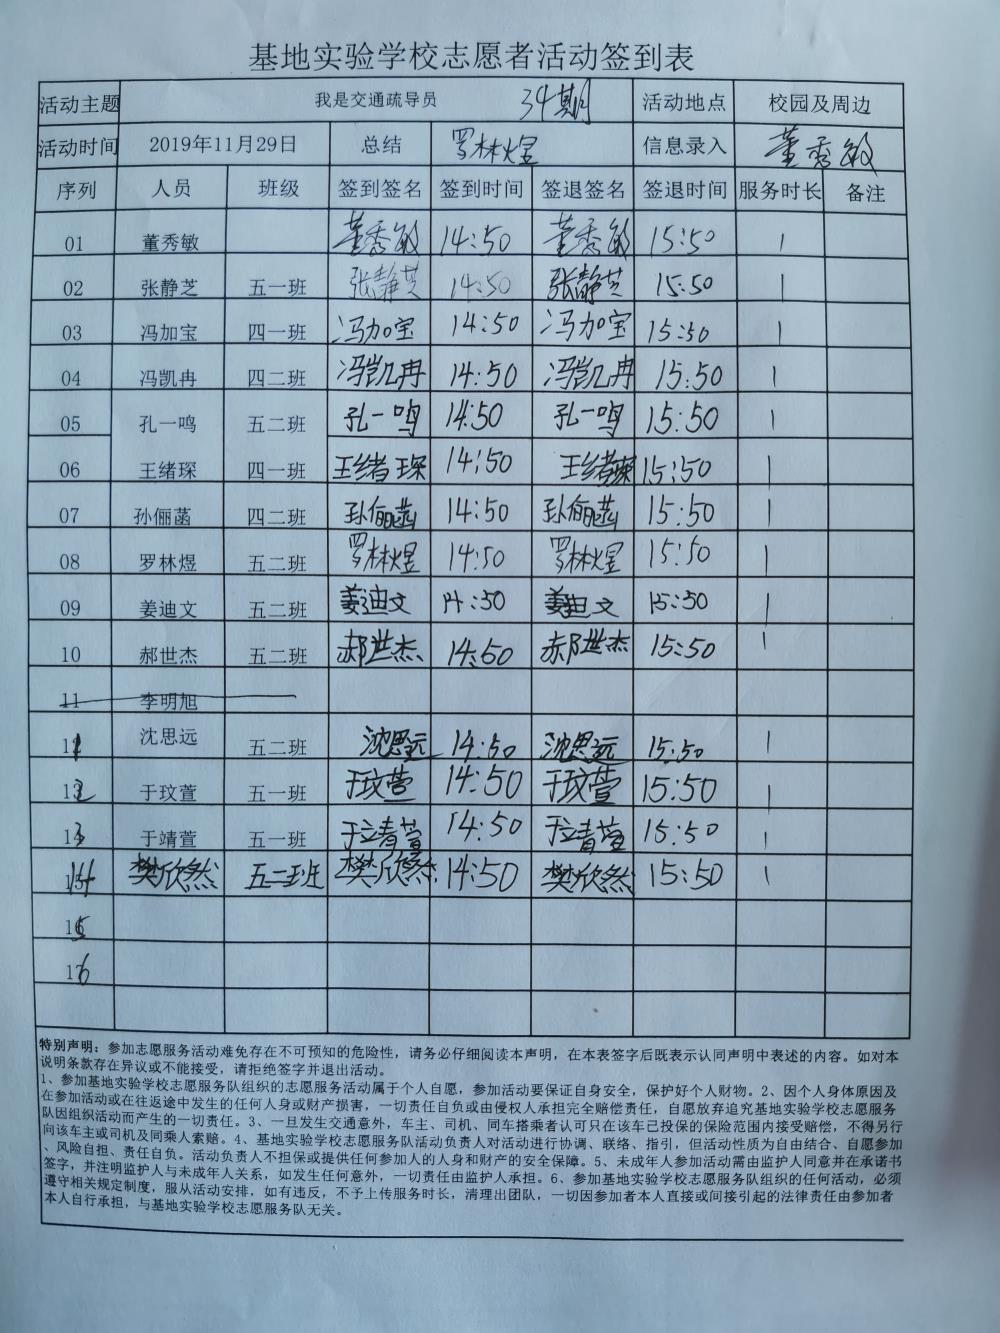 基地实验学校志愿者活动签到表
活动主题 我是交通疏导员 34期 活动地点 校园及周边
活动时间 2019年11月29日 总结 罗林煜 信息录入 董秀敏
序列 人员 班级 签到签名 签到时间 签退签名 签退时间 服务时长 备注
01 董秀敏 董秀敏 14:50 董秀敏 15:50 1
02 张静芝 五一班 张静芝 14:50 张静芝 15:50 1
03 冯加宝 四一班 冯加宝 14:50 冯加宝 15:50 1
04 冯凯冉 四二班 冯凯冉 14:50 冯凯冉 15:50 1
05 孔一鸣 五二班 孔一鸣 14:50 孔一鸣 15:50 1
06 王绪琛 四一班 王绪琛 14:50 王绪琛 15:50 1
07 孙俪菡 四二班 孙俪菡 14:50 孙俪菡 15:50 1
08 罗林煜 五二班 罗林煜 14:50 罗林煜 15:50 1
09 姜迪文 五二班 姜迪文 14:50 姜迪文 15:50 1
10 郝世杰 五二班 郝世杰 14:50 郝世杰 15:50 1
11 李明旭
11 沈思远 五二班 沈思远 14:50 沈思远 15:50 1
12 于玟萱 五一班 于玟萱 14:50 于玟萱 15:50 1
13 于靖萱 五一班 于靖萱 14:50 于靖萱 15:50 1
14 樊欣然 五二班 樊欣然 14:50 樊欣然 15:50 1
15
16
特别声明：参加志愿服务活动难免存在不可预知的危险性，请务必仔细阅读本声明，在本表签字后既表示认同声明中表述的内容。如对本
说明条款存在异议或不能接受，请拒绝签字并退出活动。
1、参加基地实验学校志愿服务队组织的志愿服务活动属于个人自愿，参加活动要保证自身安全，保护好个人财物。2、因个人身体原因及
在参加活动或在往返途中发生的任何人身或财产损害，一切责任自负或由侵权人承担完全赔偿责任，自愿放弃追究基地实验学校志愿服务
队因组织活动而产生的一切责任。3、一旦发生交通意外，车主、司机、同车搭乘者认可只在该车已投保的保险范围内接受赔偿，不得另行
向该车主或司机及同乘人索赔。4、基地实验学校志愿服务队活动负责人对活动进行协调、联络、指引，但活动性质为自由结合、自愿参加
、风险自担、责任自负。活动负责人不担保或提供任何参加人的人身和财产的安全保障。5、未成年人参加活动需由监护人同意并在承诺书
签字，并注明监护人与未成年人关系，如发生任何意外，一切责任由监护人承担。6、参加基地实验学校志愿服务队组织的任何活动，必须
遵守相关规定制度，服从活动安排，如有违反，不予上传服务时长，清理出团队，一切因参加者本人直接或间接引起的法律责任由参加者
本人自行承担，与基地实验学校志愿服务队无关。